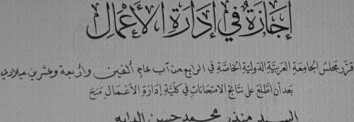 إجازة في إدارة الأعمال
قرر مجلس الجامعة العربية الدولية الخاصة في الرابع من آب عام ألفين وأربعة وعشرين ميلادي
بعد أن اطلع على نتائج الامتحانات في كلية إدارة الأعمال منح
السيد منذر محمد حسن